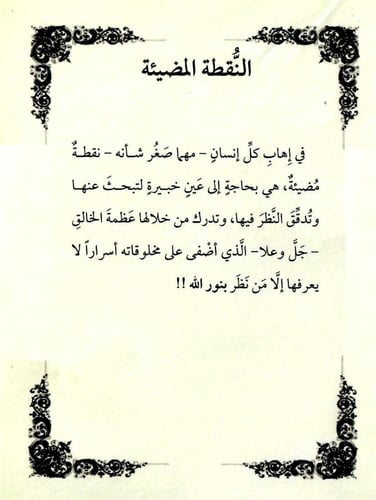 النُّقطة المضيئة
في إهابِ كلِّ إنسانٍ – مهما صَغُر شأنه – نقطةٌ
مُضيئةٌ، هي بحاجةٍ إلى عَينٍ خبيرةٍ لتبحثَ عنها
وتُدقِّقَ النَّظرَ فيها، وتدرك من خلالها عَظمةَ الخالقِ
– جَلَّ وعلا – الَّذي أضْفى على مخلوقاته أسراراً لا
يعرفها إلَّا مَن نَظَر بنور الله !!